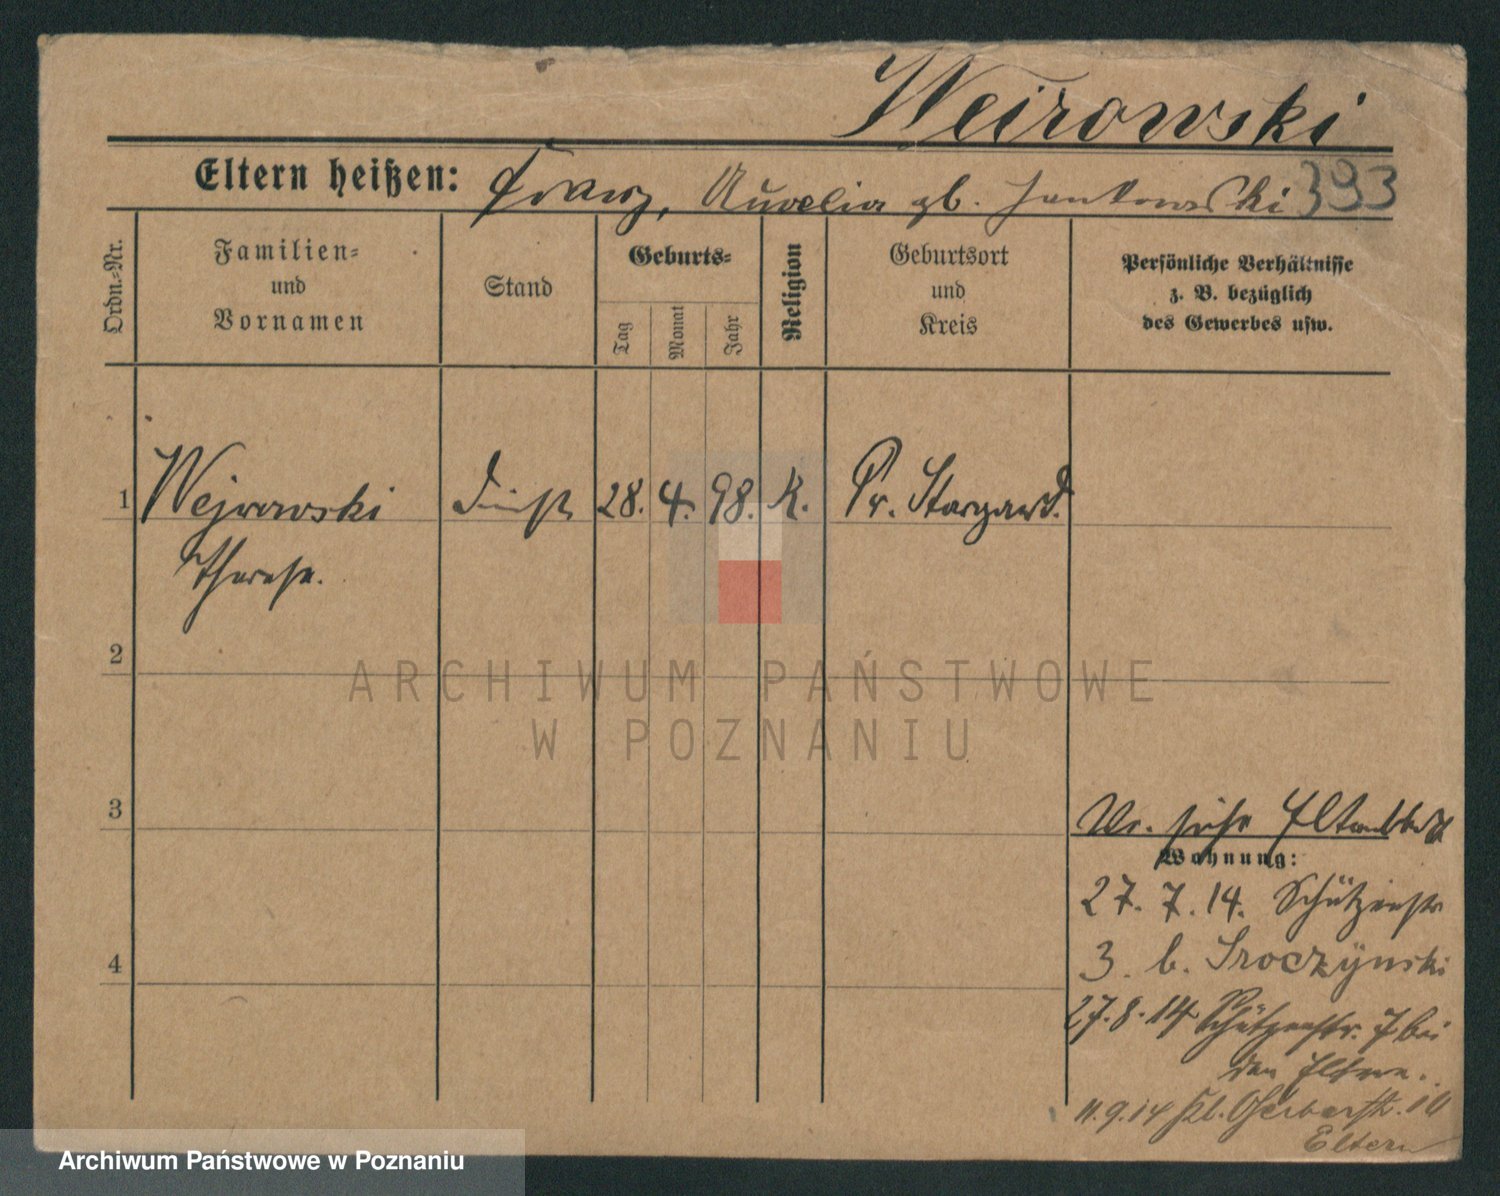 Weirowski
Eltern heißen: Franz, Aurelia gb. Jankowski 393
Ordn.-Nr.
Familien-
und
Vornamen
Stand
Geburts-
Tag
Monat
Jahr
Religion
Geburtsort
und
Kreis
Persönliche Verhältnisse
z. B. bezüglich
des Gewerbes usw.
1 Wejrowski Dienst 28. 4. 98. K. Pr. Stargard.
Therese.
2
ARCHIWUM PAŃSTWOWE
W POZNANIU
3
siehe
Wohnung:
27. 7. 14. Schützenstr
3. b. Sroczynski
4
27. 8. 14 Schützenstr. 7 bei
den Eltern.
11. 9. 14 Kl. Gerberstr. 10
Eltern
Archiwum Państwowe w Poznaniu